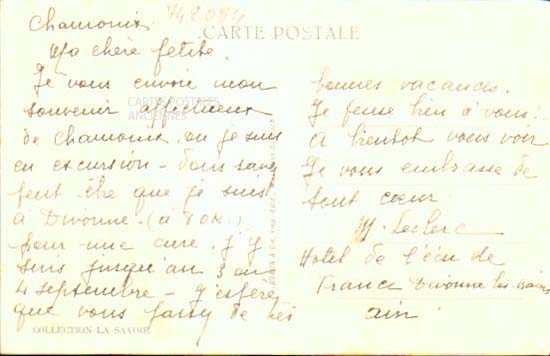 748.084
CARTE POSTALE
Chamonix
Ma chère petite.
Je vous envoie mon
souvenir affectueux
de Chamonix. où je suis
en excursion - Vous savez
peut être que je suis
à Divonne - (à 80K)
pour une cure. j'y
suis jusqu'au 3 ou
4 septembre - J'espère
que vous passez de très
bonnes vacances.
Je pense bien à vous.
A bientot vous voir
Je vous embrasse de
tout cœur
M. Leclerc
Hotel de l'écu de
France Divonne les bains
ain
CARTES POSTALES
ANCIENNES
COLLECTION LA SAVOIE